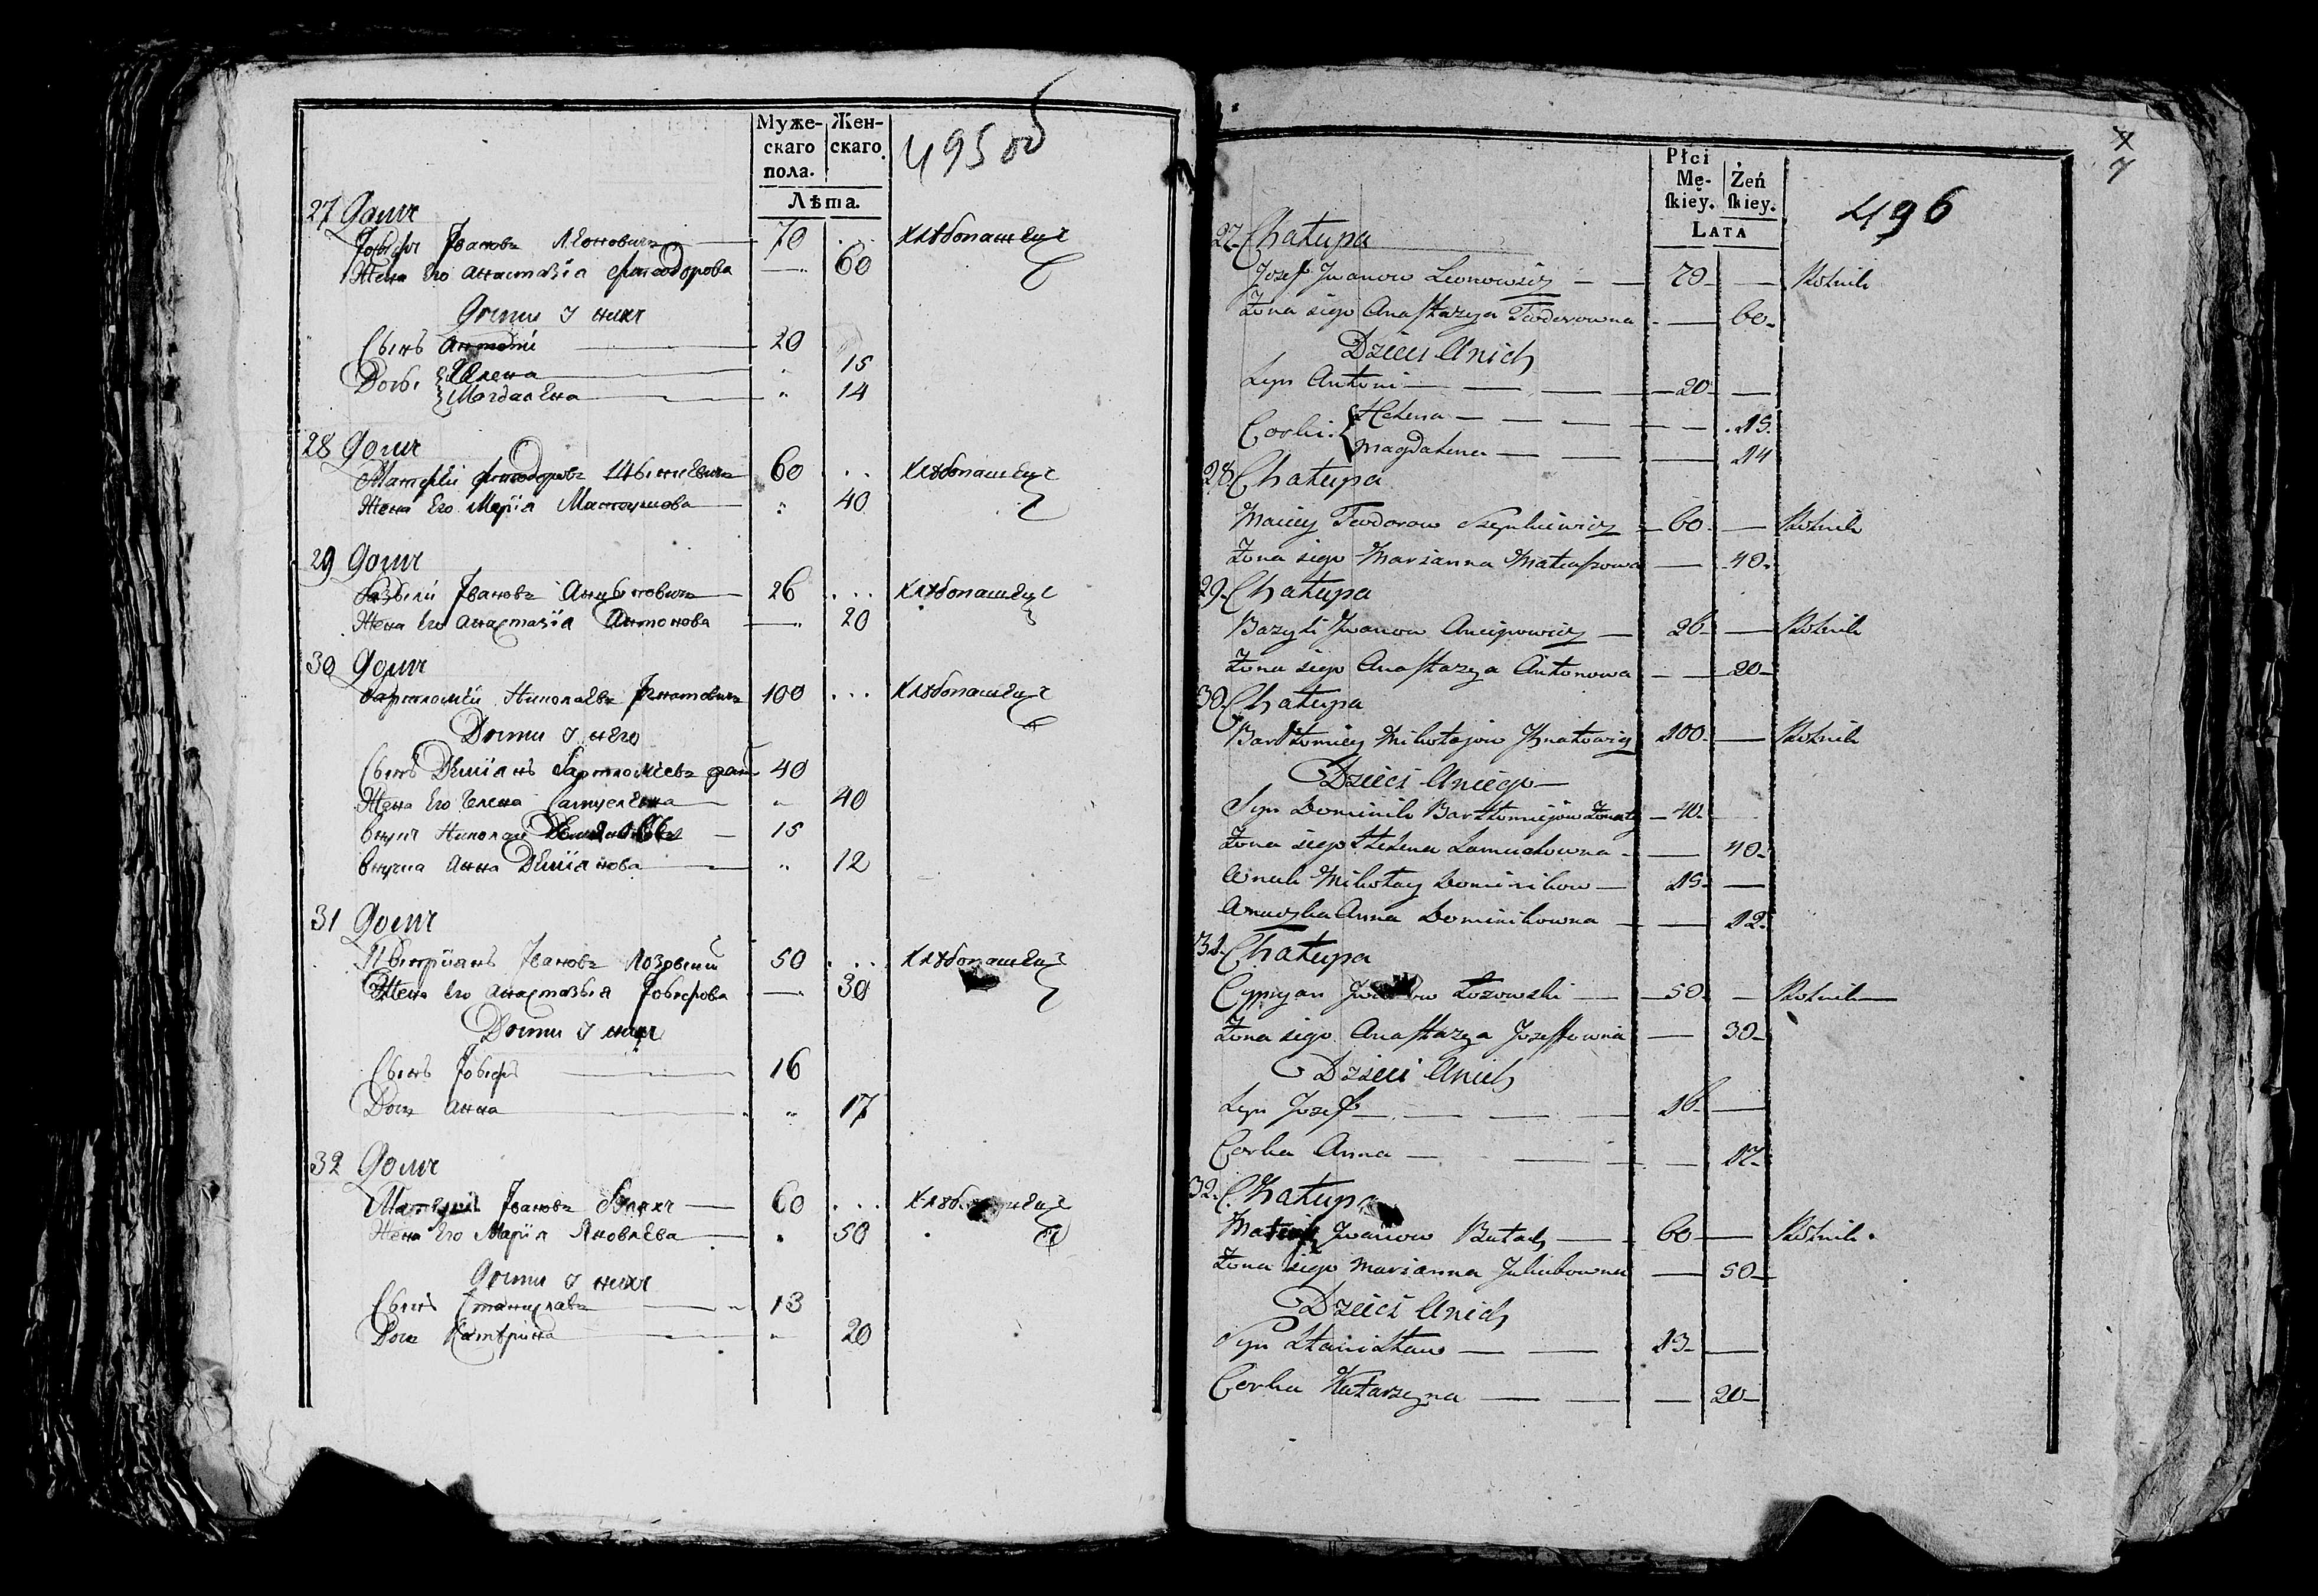 Муже-
скаго
пола.
Жен-
скаго.
Лѣта.
495 об
27 Домъ
Іосифъ Ивановъ Леоновичъ 70 хлѣбопашецъ
Жена Его Анастазїа Фиеодорова 60
Дѣти У нихъ
Сынъ Антонїй 20
Дочьі Илена 15
Магдалена 14
28 Домъ
Матфей Фиеодоровъ 60 хлѣбопашецъ
Жена Его Марїа Матеушова 40
29 Домъ
Базылій Ивановъ Анцыповичъ 26 хлѣбопашецъ
Жена Его Анастазїа Антонова 20
30 Домъ
Бартломей Николаевъ Игнатовичъ 100 хлѣбопашецъ
Дѣти У него
Сынъ Демїанъ Бартломѣевъ 40
Жена Его Гелена Самуелевна 40
Внукъ Николай 15
Внучка Анна Демїанова 12
31 Домъ
Цыпріянъ Ивановъ Лозовскій 50 хлѣбопашецъ
Жена Его Анастазыя Іозефова 30
Дѣти У нихъ
Сынъ Іозефъ 16
Дочь Анна 17
32 Домъ
Ивановъ 60 хлѣбопашецъ
Жена Его Марїя Яковлева 50
Дѣти У нихъ
Сынъ Станиславъ 13
Дочь Катерина 20
7
7
Płci
Mę-
skiey.
Żeń
skiey.
LATA
496
27. Chałupa
Jozef Jwanow Leonowicz 70 Rolnik
Żona iego Anastazya Teodorowna 60
Dzieci U nich
Syn Antoni 20
Corki: Helena 15
Magdalena 14
28. Chałupa
Maciey Teodorow 60 Rolnik
Żona iego Marianna Mateuszowa 40
29. Chałupa
Bazyli Jwanow Ancipowicz 26 Rolnik
Żona iego Anastazya Antonowa 20
30. Chałupa
Bartłomiey Mikołajow Jhnatowicz 100 Rolnik
Dzieci U niego
Syn Dominik Bartłomiejow Żonaty 40
Żona iego Helena Samuelowna 40
Wnuk Mikołay Dominikow 15
Wnuczka Anna Dominikowna 12
31. Chałupa
Cypryan Jwanow Łozowski 50 Rolnik
Żona iego Anastazya Jozeffowna 30
Dzieci U nich
Syn Jozef 16
Corka Anna 17
32. Chałupa
Jwanow 60 Rolnik
Żona iego Marianna Jakubowna 50
Dzieci U nich
Syn Stanisław 13
Corka Katarzyna 20